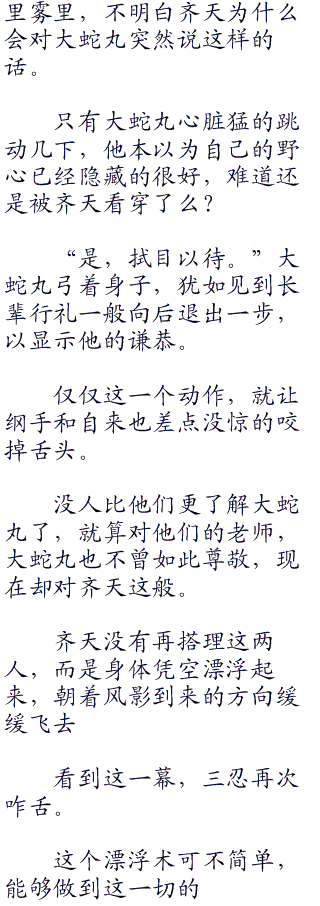 里雾里，不明白齐天为什么
会对大蛇丸突然说这样的
话。
只有大蛇丸心脏猛的跳
动几下，他本以为自己的野
心已经隐藏的很好，难道还
是被齐天看穿了么？
“是，拭目以待。”大
蛇丸弓着身子，犹如见到长
辈行礼一般向后退出一步，
以显示他的谦恭。
仅仅这一个动作，就让
纲手和自来也差点没惊的咬
掉舌头。
没人比他们更了解大蛇
丸了，就算对他们的老师，
大蛇丸也不曾如此尊敬，现
在却对齐天这般。
齐天没有再搭理这两
人，而是身体凭空漂浮起
来，朝着风影到来的方向缓
缓飞去
看到这一幕，三忍再次
咋舌。
这个漂浮术可不简单，
能够做到这一切的